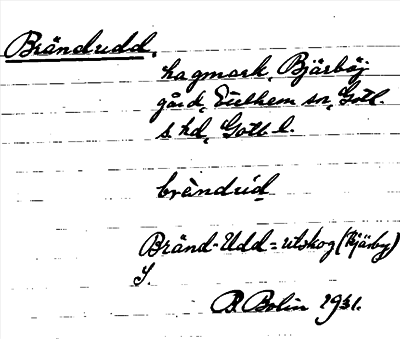 Brändudd,
hagmark, Bjärby
gård, Eskelhem sn, Gotl.
s hd, Gotl l.
brèndùd
Bränd-Udd = utskog (Bjärby)
S.
B. Bolin 1931.